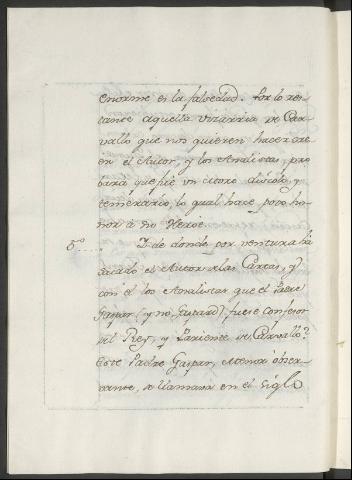 enorme es la falsedad. Por lo res-
tante aquella vizarria de Car-
vallo que nos quieren hacer cre-
er el Autor, y los Analistas, pro
bará que fue un discolo, y
temerario, lo qual hace poco ho-
nor á no Heroe.
5.º Y de donde por ventura há
sacado el Autor de las Cartas, y
con el los Analistas que el Padre
Gaspar (y no Gusard) fuese Confesor
del Rey, y Pariente de Carvallo?
Este Padre Gaspar, Menor obser-
vante, se llamava en el Siglo